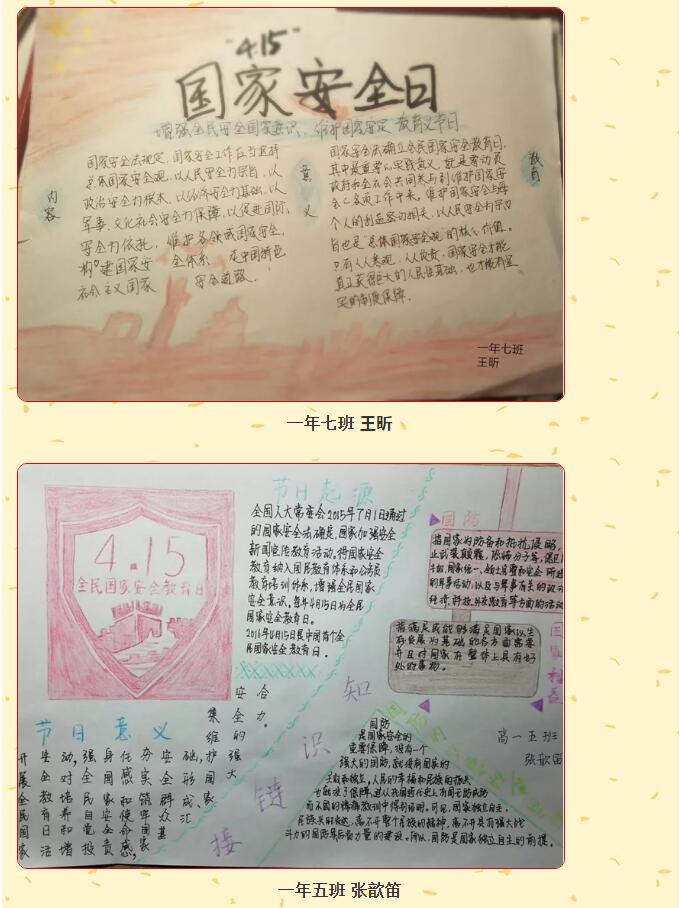 "4.15"
国家安全日
增强全民安全国家意识，维护国家安定 教育义节日
国家安全法规定，国家安全工作应当坚持
总体国家安全观，以人民安全为宗旨，以
政治安全为根本，以经济安全为基础，以
军事、文化社会安全为保障，以促进国际
安全为依托，维护各领域国家安全，
构建国家安全体系 走中国特色
社会主义国家 安全道路．
内容
意义
国家安全法确立全民国家安全教育日，
其中最重要的实践意义，就是要动员
政府和全社会共同参与到维护国家安
全各项工作中来。维护国家安全与每
个人的利益密切相关，以人民安全为宗
旨也是总体国家安全观的核心价值。
只有人人参与，人人负责，国家安全才能
真正获得巨大的人民性基础，也才能有坚
实的制度保障．
教育
一年七班
王昕
一年七班 王昕
4.15
全民国家安全教育日
节日起源
全国人大常委会2015年7月1日通过
的国家安全法确定，国家加强安全
新闻宣传教育活动，将国家安全
教育纳入国民教育体系和公务员
教育培训体系，增强全民国家
安全意识。每年4月15日为全民
国家安全教育日。
2016年4月15日是中国首个全
民国家安全教育日。
国防
指国家为防备和抵抗侵略，
止武装颠覆，
国家统一、领土完整和安全所进
的军事活动，以及与军事有关的政
经济、科技、外交教育等方面的活动
指满足或能够满足国家以生
存发展为基础的各方面需要
并且对国家在整体上具有好
处的事物。
国家利益
节日意义
开展全民国家
安全教育日活
动，对培养和增
强全民自觉投
身国家安全责
任感和使命感，
夯实筑牢国家
安全群众基
础，形成汇
集维护国家
安全的强大
合力。
知识链接
高一五班
张歆笛
国防
是国家安全的
重要保障，没有一个
强大的国防，就没有国家的
主权和独立，人民的幸福和民族的
也就没了保障。
民族要
斗力的国防军后备力量的建设。所以，国防是国家独立自主的前提。
一年五班 张歆笛